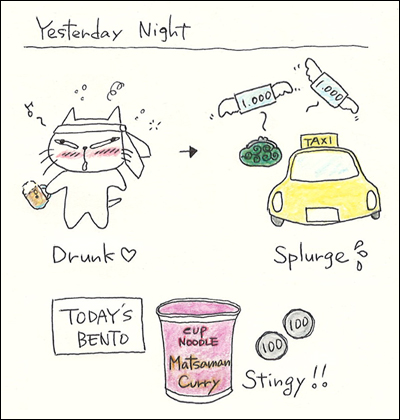 Yesterday Night
1.000
1.000
TAXI
Drunk♡
Splurge
TODAY'S
BENTO
CUP
NOODLE
Matsaman
Curry
100
100
Stingy!!